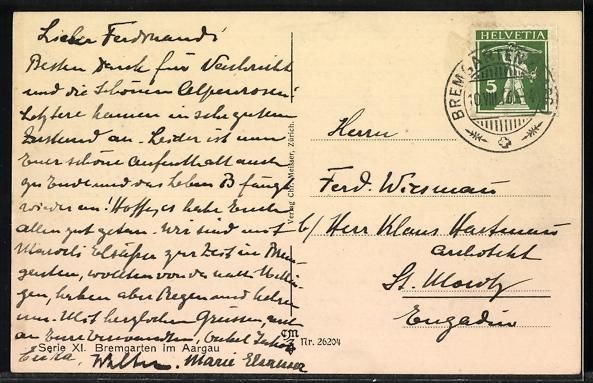 Lieber Ferdinand!
Besten Dank für Nachricht
und die schönen Alpenrosen!
Letztere kamen in sehr gutem
Zustand an. Leider ist nun
Euer schöne Aufenthalt auch
zu Ende und das Leben B fängt
wieder an! Hoffe, es habe Euch
allen gut getan. Wir sind mit
Elsässer zur Zeit in Brem-
garten, wollten von da nach Mellin-
gen, haben aber Regen und kehren
um. Mit herzlichen Grüssen, auch
an Eure Verwandten,
Erika, Walter. Marie Elsässer
Serie XI. Bremgarten im Aargau
Verlag Chr. Meisser, Zürich.
CM
Nr. 26204
HELVETIA
5
BREMGARTEN
10.VIII.
Herrn
Ferd. Wiesmann
b/ Herr Klaus Hartmann
Architekt
St. Moritz
Engadin